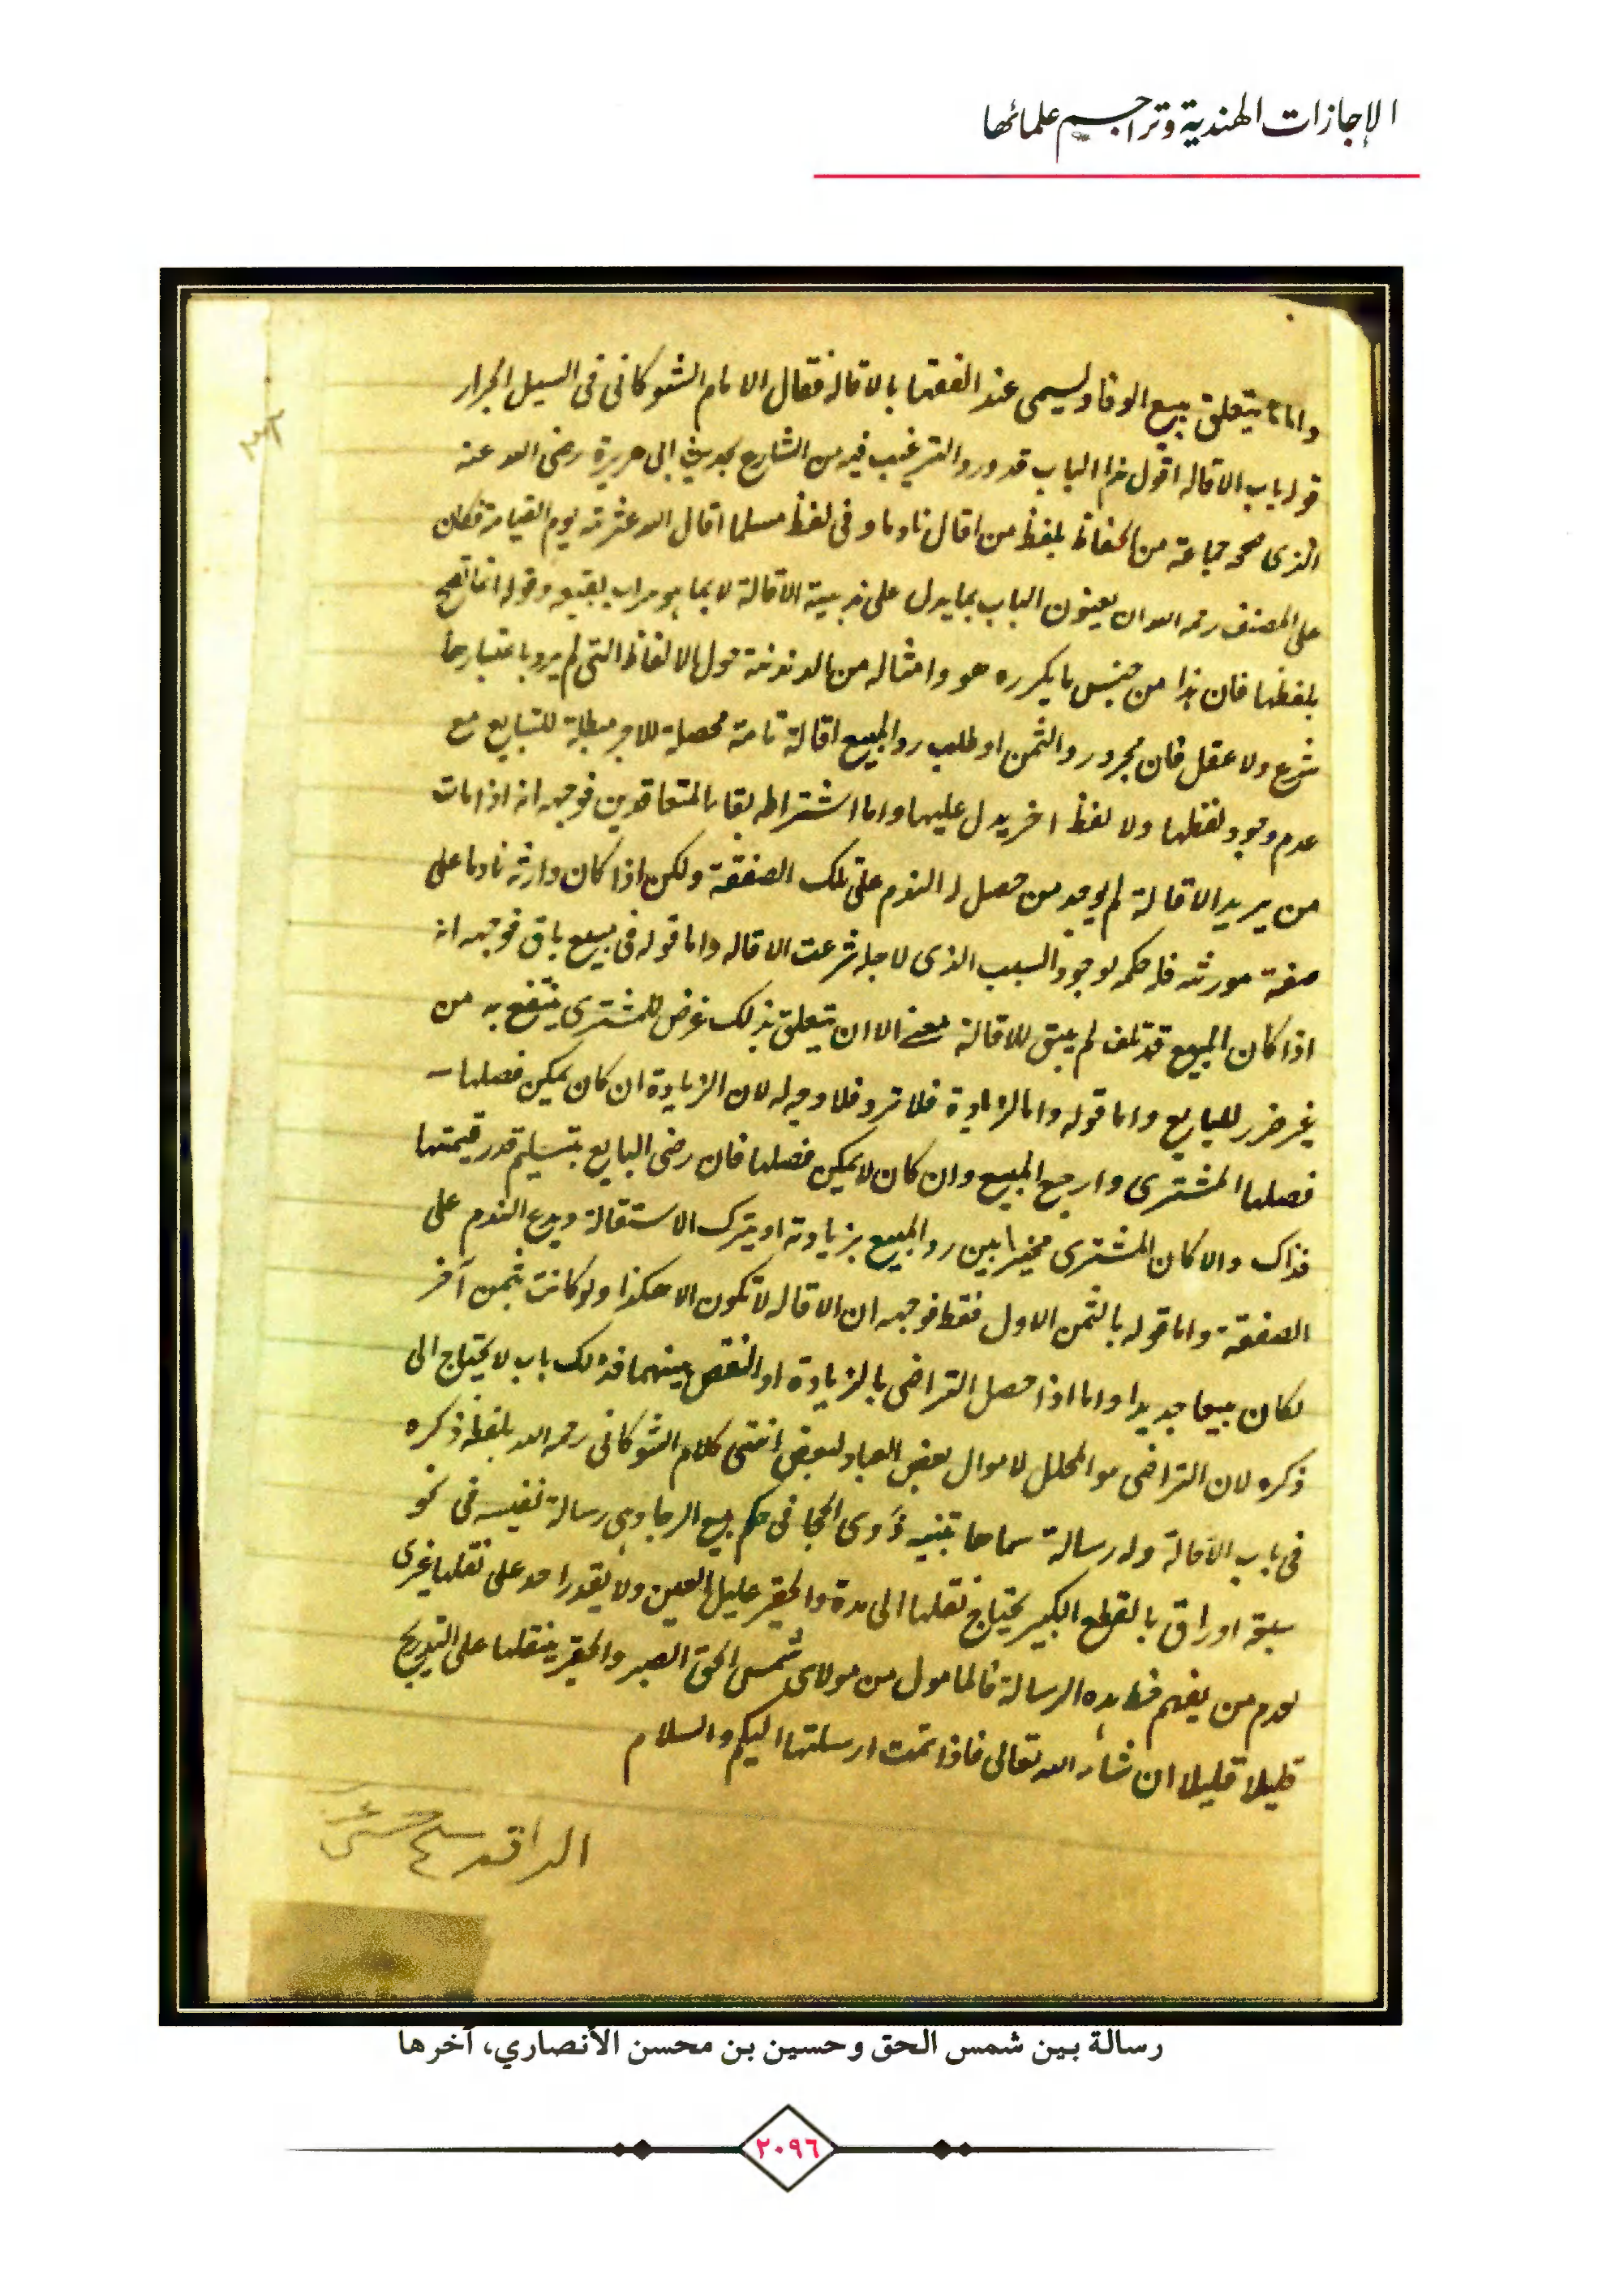 الإجازات الهندية وتراجم علمائها
واما ما يتعلق ببيع الوفا ويسمى عند الفقها بالاقاله فقال الامام الشوكانى فى السيل الجرار
قوله باب الاقاله اقول هذا الباب قد ورد الترغيب فيه من الشارع بحديث ابى هريرة رضى الله عنه
الذى صححه جماعة من الحفاظ بلفظ من اقال نادما وفى لفظ مسلما اقال الله عثرته يوم القيامة فكان
على المصنف رحمه الله ان يعنون الباب بما يدل على ندبية الاقالة لا بما هو مراب بقيه وقوله انما تصح
بلفظها فان هذا من جنس ما يكرره هو وامثاله من الدندنة حول الالفاظ التى لم يرد باعتبارها
شرع ولا عقل فان مجرد رد الثمن او طلب رد المبيع اقالة تامة محصلة للاجر مبطلة للتبايع مع
عدم وجود لفظها ولا لفظ اخر يدل عليها واما اشتراط بقاء المتعاقدين فوجهه انه اذا مات
من يريد الاقالة لم يوجد من حصل له الندم على تلك الصفقة ولكن اذا كان وارثه نادما على
صفقة مورثه فله حكمه لوجود السبب الذى لاجله شرعت الاقاله واما قوله فى مبيع باق فوجهه انه
اذا كان المبيع قد تلف لم يبق للاقالة معنى الا ان يتعلق بذلك غرض للمشترى ينتفع به من
غير ضرر للبايع واما قوله واما الزيادة فلا ترد فلا وجه له لان الزيادة ان كان يمكن فصلها
فصلها المشترى وارجع المبيع وان كان لا يمكن فصلها فان رضى البايع بتسليم قدر قيمتها
فذاك والا كان المشترى مخيرا بين رد المبيع بزيادته او يترك الاستقالة ويدع الندم على
الصفقة واما قوله بالثمن الاول فقط فوجهه ان الاقاله لا تكون الا هكذا ولو كانت بثمن آخر
لكان بيعا جديدا واما اذا حصل التراضى بالزيادة او النقص بينهما فذلك باب لا يحتاج الى
ذكره لان التراضى هو المحلل لاموال بعض العباد لبعض انتهى كلام الشوكانى رحمه الله بلفظه ذكره
فى باب الاقالة وله رسالة سماها تنبيه ذوى الحجا فى حكم بيع الرجا وهى رسالة نفيسه فى نحو
سبعة اوراق بالقطع الكبير يحتاج نقلها الى مدة والحقير عليل العين ولا يقدر احد على نقلها غيرى
لعدم من يفهم خط هذه الرسالة فالمامول من مولاى شمس الحق الصبر والحقير ينقلها على التدريج
قليلا قليلا ان شاء الله تعالى فاذا تمت ارسلتها اليكم والسلام
رسالة بين شمس الحق وحسين بن محسن الأنصاري، آخرها
٢٠٩٦